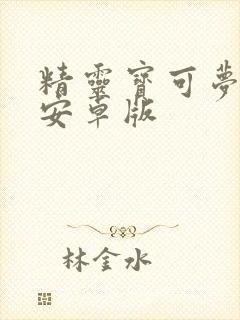 精靈寶可夢
安卓版
林金水